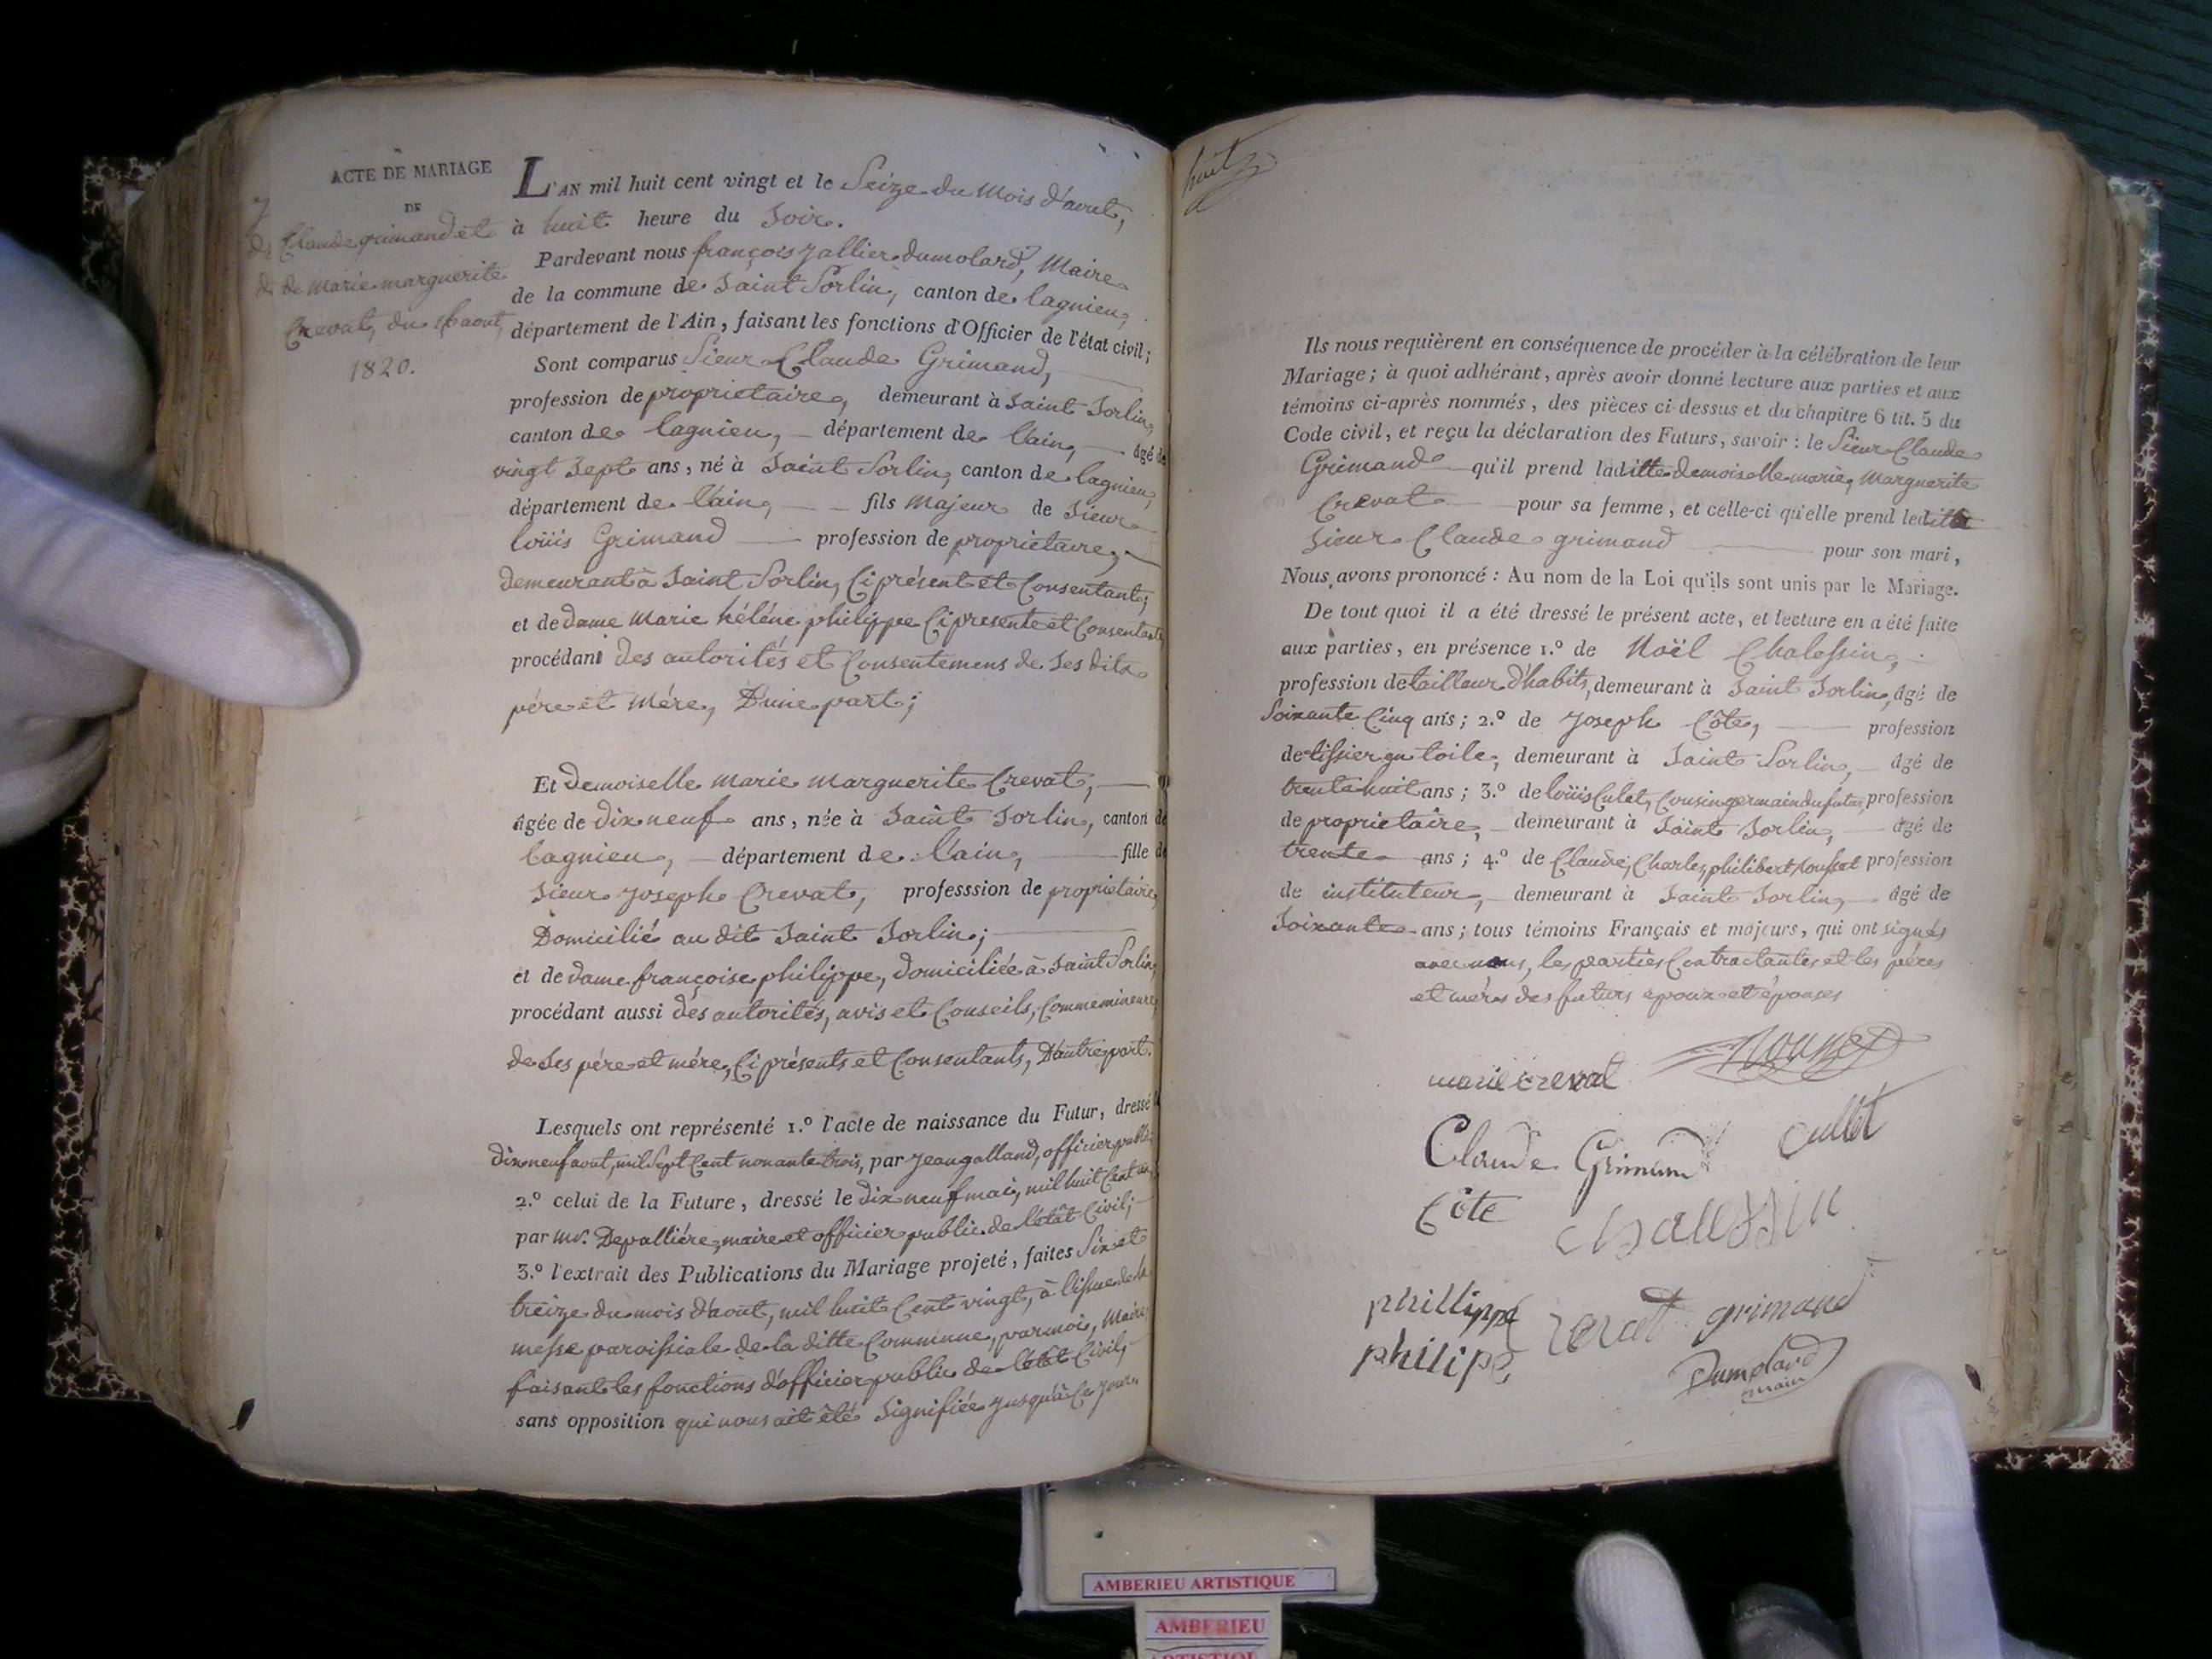 ACTE DE MARIAGE
DE
Claude grimand et
de marie marguerite
Crevat, du 16 aout,
1820.
L'AN mil huit cent vingt et le Seize du Mois d'aout,
à huit heure du Soir.
Pardevant nous françois jallier dumolard, Maire
de la commune de Saint Sorlin, canton de lagnieu,
département de l'Ain, faisant les fonctions d'Officier de l'état civil;
Sont comparus Sieur Claude Grimand,
profession de proprietaire, demeurant à Saint Sorlin,
canton de lagnieu, département de l'ain, âgé de
vingt Sept ans, né à Saint Sorlin, canton de lagnieu,
département de l'ain, fils Majeur de Sieur
loüis Grimand profession de propriétaire,
demeurant à Saint Sorlin, Ci présent et Consentant;
et de Dame Marie hélène philippe Ci presente et Consentante
procédant des autorités et Consentemens de Ses dits
père et Mère, D'une part;
Et Demoiselle Marie Marguerite Crevat,
âgée de Dix neuf ans, née à Saint Sorlin, canton de
lagnieu, département de l'ain, fille de
Sieur joseph Crevat, professsion de proprietaire,
Domicilié au dit Saint Sorlin;
et de Dame françoise philippe, domiciliée à Saint Sorlin,
procédant aussi des autorités, avis et Conseils, Comme mineure,
de Ses père et mére, Ci présents et Consentants, D'autre part.
Lesquels ont représenté 1.º l'acte de naissance du Futur, dressé le
dix neuf aout, mil Sept Cent nonante trois, par jean galland, officier public
2.º celui de la Future, dressé le dix neuf mai, mil huit Cent un,
par Mr. Depallière, maire et officier public de l'état Civil;
3.º l'extrait des Publications du Mariage projeté, faites Six et
treize du mois d'aout, mil huit Cent vingt, à l'issue de la
messe paroissiale de la ditte Commune, par moi, Maire
faisant les fonctions d'officier public de l'état Civil,
sans opposition qui nous ait été Signifiée jusqu'à Ce jour.
huit
Ils nous requièrent en conséquence de procéder à la célébration de leur
Mariage; à quoi adhérant, après avoir donné lecture aux parties et aux
témoins ci-après nommés, des pièces ci-dessus et du chapitre 6 tit. 5 du
Code civil, et reçu la déclaration des Futurs, savoir : le Sieur Claude
Grimand qu'il prend laditte demoiselle marie, Marguerite
Crevat pour sa femme, et celle-ci qu'elle prend ledit
Sieur Claude grimand pour son mari,
Nous avons prononcé : Au nom de la Loi qu'ils sont unis par le Mariage.
De tout quoi il a été dressé le présent acte, et lecture en a été faite
aux parties, en présence 1.º de Noël Chalessin,
profession de tailleur d'habits, demeurant à Saint Sorlin, âgé de
Soixante Cinq ans; 2.º de joseph Côte, profession
de tissier en toile, demeurant à Saint Sorlin, âgé de
trente huit ans; 3.º de loüis Culet, Cousin germain du futur, profession
de proprietaire, demeurant à Saint Sorlin, âgé de
trente ans; 4.º de Claude, Charles, philibert profession
de instituteur, demeurant à Saint Sorlin, âgé de
Soixante ans; tous témoins Français et majeurs, qui ont signés
avec nous, les parties Contractantes et les péres
et méres des futurs epoux et épouses
marie crevat
Claude Grimand cullet
Côte
phillippe grimand
philipe
Dumolard
maire
AMBERIEU ARTISTIQUE
AMBERIEU
ARTISTIQUE